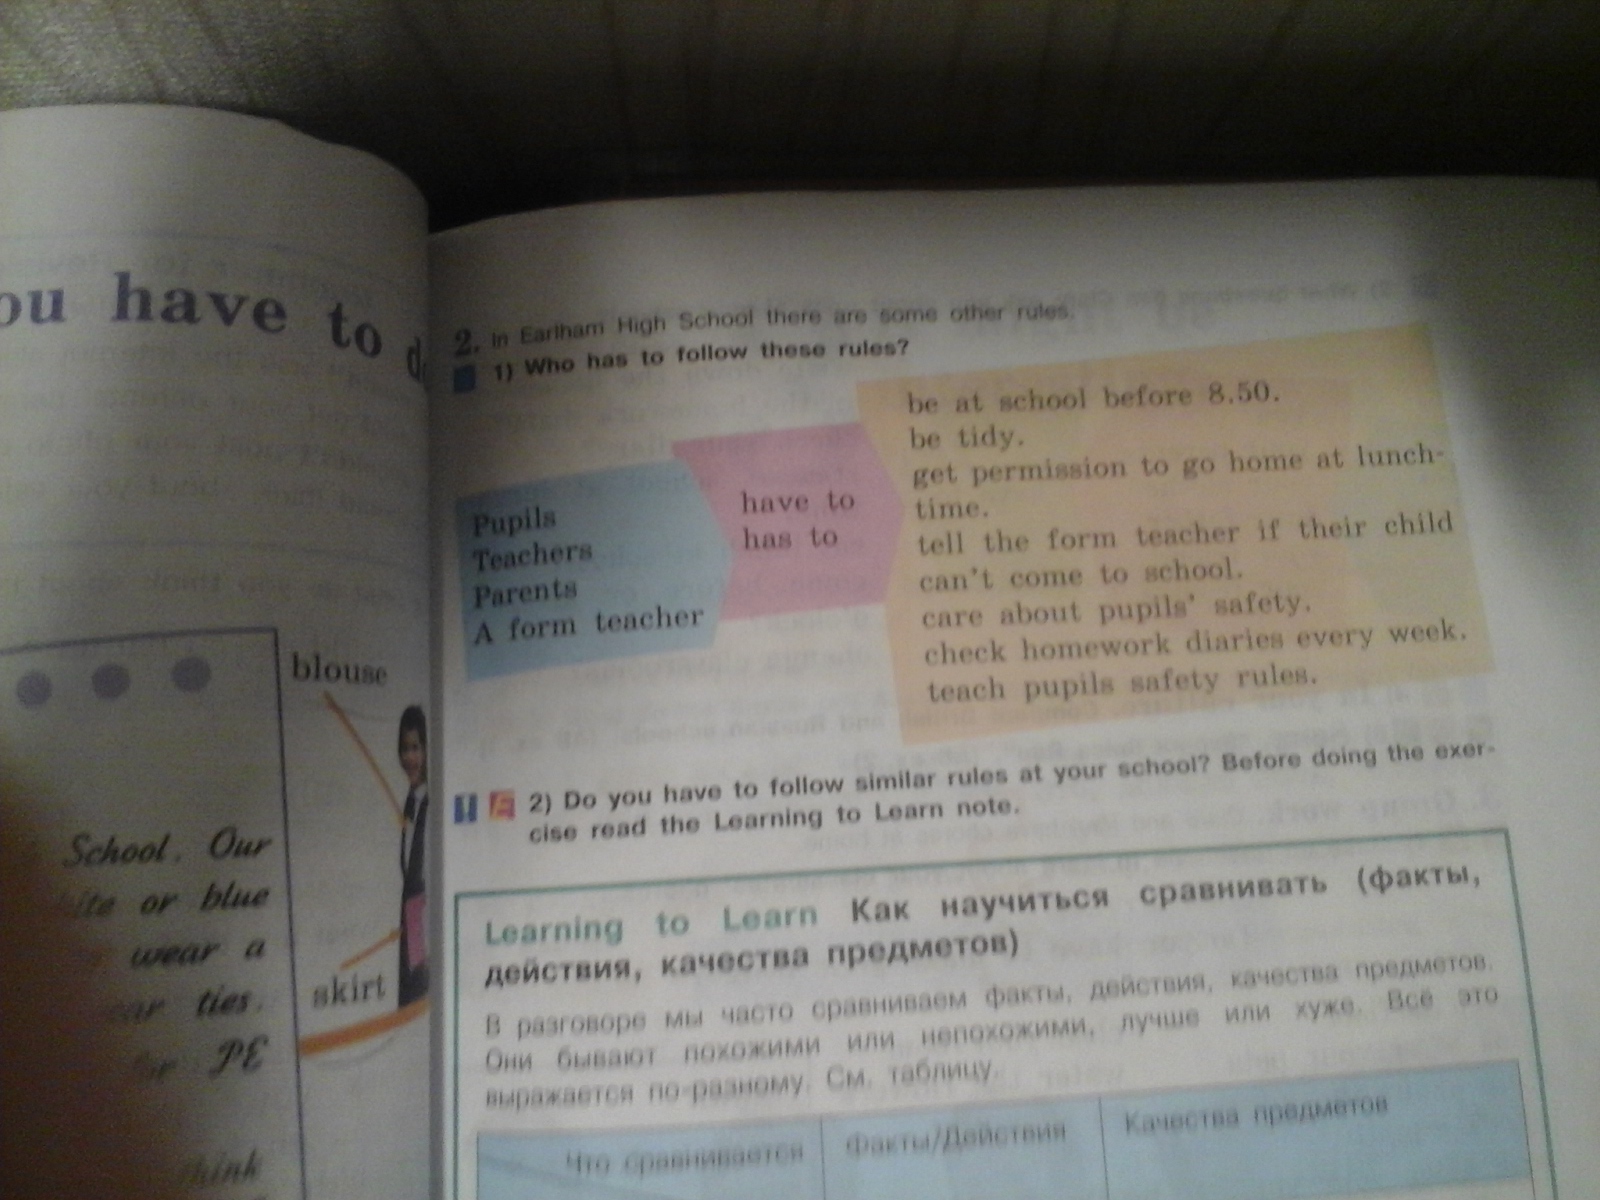 ou have to
blouse
skirt
School. Our
or blue
wear a
ties.
PE
think
2. In Earlham High School there are some other rules.
1) Who has to follow these rules?
Pupils
Teachers
Parents
A form teacher
have to
has to
be at school before 8.50.
be tidy.
get permission to go home at lunch-
time.
tell the form teacher if their child
can't come to school.
care about pupils' safety.
check homework diaries every week.
teach pupils safety rules.
2) Do you have to follow similar rules at your school? Before doing the exer-
cise read the Learning to Learn note.
Learning to Learn Как научиться сравнивать (факты,
действия, качества предметов)
В разговоре мы часто сравниваем факты, действия, качества предметов.
Они бывают похожими или непохожими, лучше или хуже. Всё это
выражается по-разному. См. таблицу.
Что сравнивается
Факты/Действия
Качества предметов